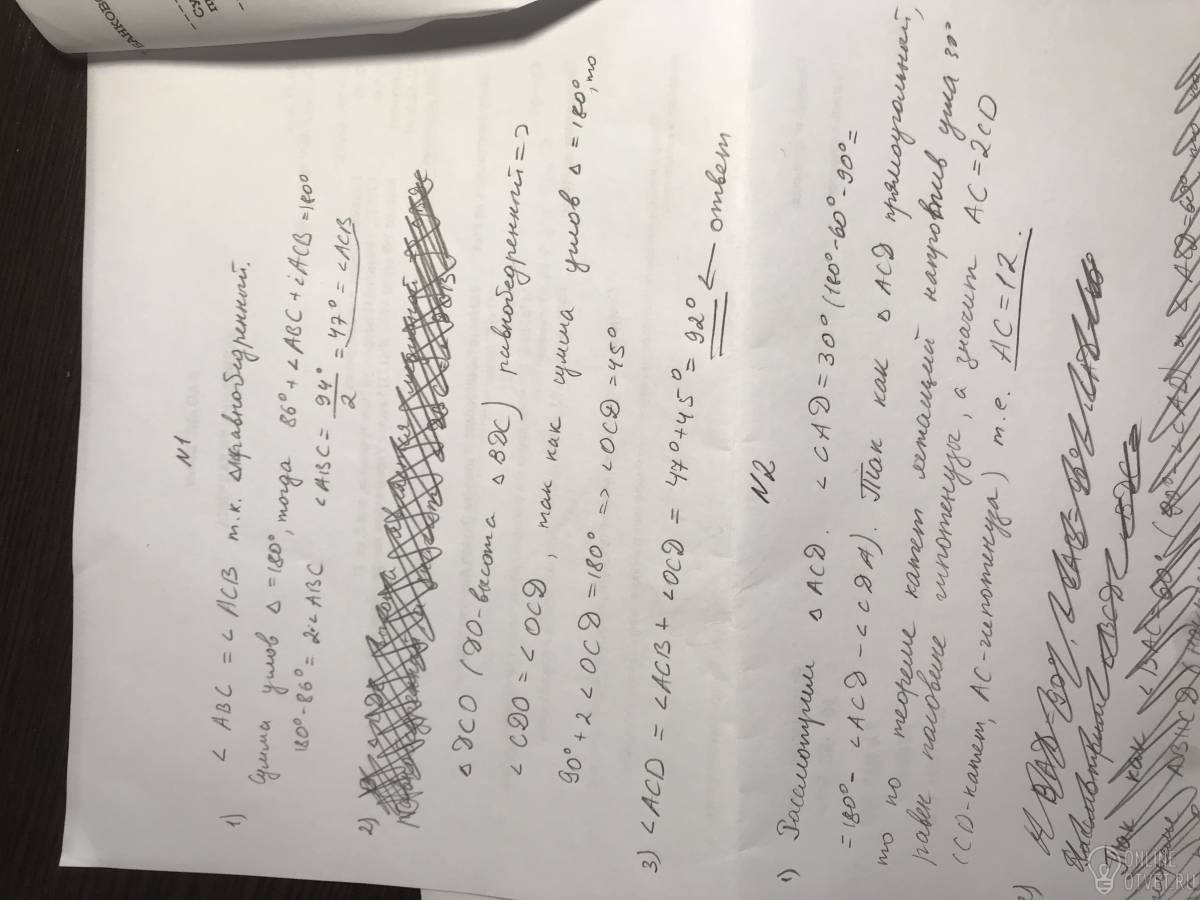 БАНКОВС
N1
1) ∠ABC = ∠ACB т.к. Δ равнобедренный.
Сумма углов Δ = 180°, тогда 86° + ∠ABC + ∠ACB = 180°
180° - 86° = 2·∠ABC ∠ABC = 94°/2 = 47° = ∠ACB
2)
Δ DCO (DO-высота Δ BDC) равнобедренный =>
∠CDO = ∠OCD, так как сумма углов Δ = 180°, то
90° + 2∠OCD = 180° => ∠OCD = 45°
3) ∠ACD = ∠ACB + ∠OCD = 47° + 45° = 92° ← ответ
N2
1) Рассмотрим Δ ACD. ∠CAD = 30° (180° - 60° - 90° =
= 180° - ∠ACD - ∠CDA). Так как Δ ACD прямоугольный,
то по теореме катет лежащий напротив угла 30°
равен половине гипотенузы, а значит AC = 2CD
(CD-катет, AC-гипотенуза) т.е. AC = 12.
2) ∠BAD = 90°,
Рассмотрим
Так как ∠BAC = 60°
ONLINE
OTVET.RU